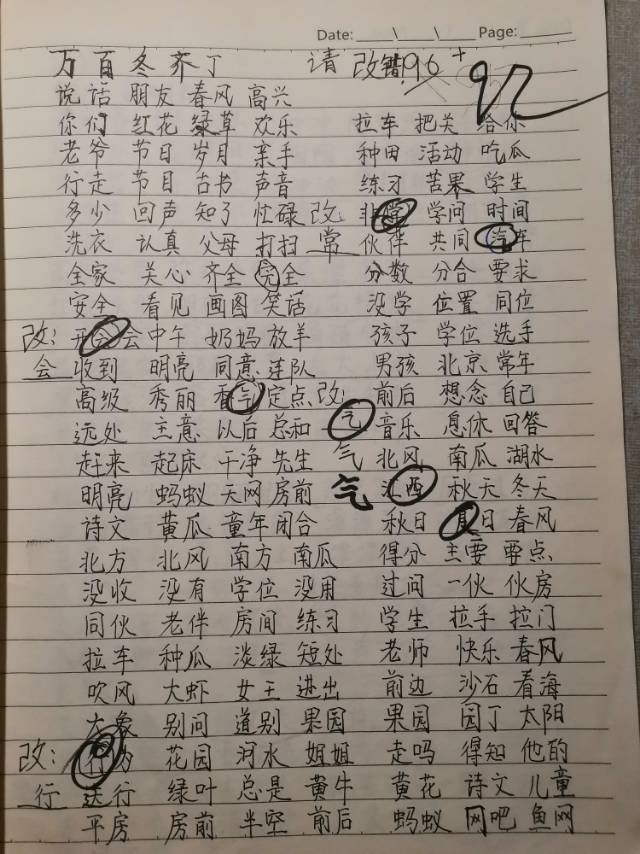 Date: \ \ Page:
万 百 冬 齐 丁 请 改错 96+ 92
说话 朋友 春风 高兴
你们 红花 绿草 欢乐 拉车 把关 给你
老爷 节日 岁月 亲手 种田 活动 吃瓜
行走 节目 古书 声音 练习 苦果 学生
多少 回声 知了 忙碌 改 非常 学问 时间
洗衣 认真 父母 打扫 常 伙伴 共同 汽车
全家 关心 齐全 完全 分数 分合 要求
安全 看见 画图 笑话 没学 位置 同位
改: 开会 会中午 奶妈 放羊 孩子 学位 选手
会 收到 明亮 同意 连队 男孩 北京 常年
高级 秀丽 香气 定点 改: 前后 想念 自己
远处 主意 以后 总和 气 音乐 息休 回答
赶来 起床 干净 先生 气 北风 南瓜 湖水
明亮 蚂蚁 天网 房前 气 江西 秋天 冬天
诗文 黄瓜 童年 闭合 秋日 夏日 春风
北方 北风 南方 南瓜 得分 主要 要点
没收 没有 学位 没用 过问 一伙 伙房
同伙 老伴 房间 练习 学生 拉手 拉门
拉车 种瓜 淡绿 短处 老师 快乐 春风
吹风 大虾 女王 进出 前边 沙石 看海
大象 别问 道别 果园 果园 园丁 太阳
改: 行为 花园 河水 姐姐 走吗 得知 他的
行 送行 绿叶 总是 黄牛 黄花 诗文 儿童
平房 房前 半空 前后 蚂蚁 网吧 鱼网